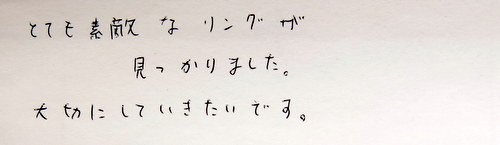 とても素敵なリングが
見つかりました。
大切にしていきたいです。